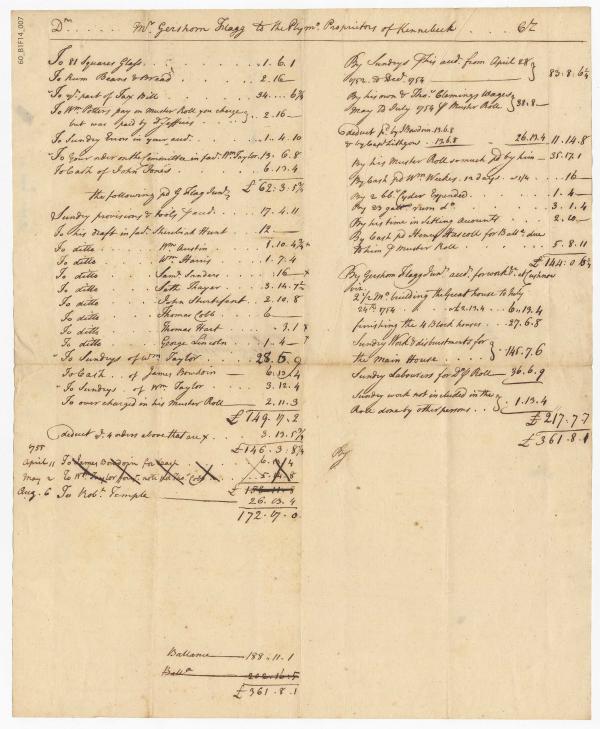 60_B1F14_007
Dr. Mr. Gershom Flagg to the Plymo. Proprietors of Kennebeck . . Cr
To 81 Squares Glass . . . . 1.6.1
To Rum Beans & Bread . . . 2.16—
To pt. part of Tax Bill . . . 34....6¾
To Wm. Potters pay on Muster Roll you charge
but was paid by D Jeffries . . . 2.16—
To Sundry Error in your accot. . . . 1.4.10
To Your order on the Committee in favr. Wm. Taylor. 13.6.8
To Cash of John Jones . . . 6.13.4
£62.3.5¾
the following pd G Flagg Junr.
Sundry provisions & tools . . 17.4.11
To his draft in favr. Sherebiah Hunt . . 12—
To ditto . . Wm. Austin . . 1.10.4¾ x
To ditto . . Wm. Harris . . 1.7.4
To ditto . . Saml. Sanders . . 16— x
To ditto . . Seth Thayer . . 3.14.7½
To ditto . . John Sturtifant . . 2.10.8
To ditto . . Thomas Cobb . . 6—
To ditto . . Thomas Hart . . .3.1
To ditto . . George Lincoln . . 1.4—
To Sundrys of Wm. Taylor . . 28.5.9
To Cash . . of James Bowdoin — 6.13.4
To Sundrys . of Wm. Taylor . . 3.12.4
To over charged in his Muster Roll — 2.11.3
£149.17.2
deduct 4 orders above that are x . . 3.13.5¾
£146.3.8¼
1755
April 11 To James Bowdoin for Cash . . 6.13.4
May 2 To Wm. Taylor for note to Thos. Cobb . . 5.14.8
£158.11.8
Aug. 6 To Robt. Temple 26.13.4
172.17.0
Ballance — 188.11.1
Balla. — 202.16.5
£361.8.1
By Sundrys this accot. from April 28
1752 to Decr. 1754 83.8.6½
By his own & Thos. Clemings Wages
May to July 1754 Muster Roll 38.8—
deduct pd. by J Bowdoin 13.6.8
& by Capt Lithgow . . 13.6.8 — 26.13.4 11.14.8
By his Muster Roll so much pd by him — 35.17.1
By Cash pd Wm. Weeks 12 days . . 16—
By 2 bbs. Cyder Expended . . . 1.4—
By 23 galls Rum do. . . . 3.1.4
By his time in Setling accounts . . 2.10—
By Cash pd Henry Hascoll for Balla. due
to him Muster Roll . . . 5.8.11
£144.0.6½
By Gershom Flagg Junr. accot. for work
Viz.
2½ Mo. building the Great house to July
24th 1754 . . at 2.13.4 . . 6.13.4
finishing the 4 Block houses . . 27.6.8
Sundry Work & disbursments for
the Main House . . . 145.7.6
Sundry Labourers for Do. Roll — 36.6.9
Sundry work not included in the
Roll done by other persons . . 1.13.4
£217.7.7
£361.8.1
By